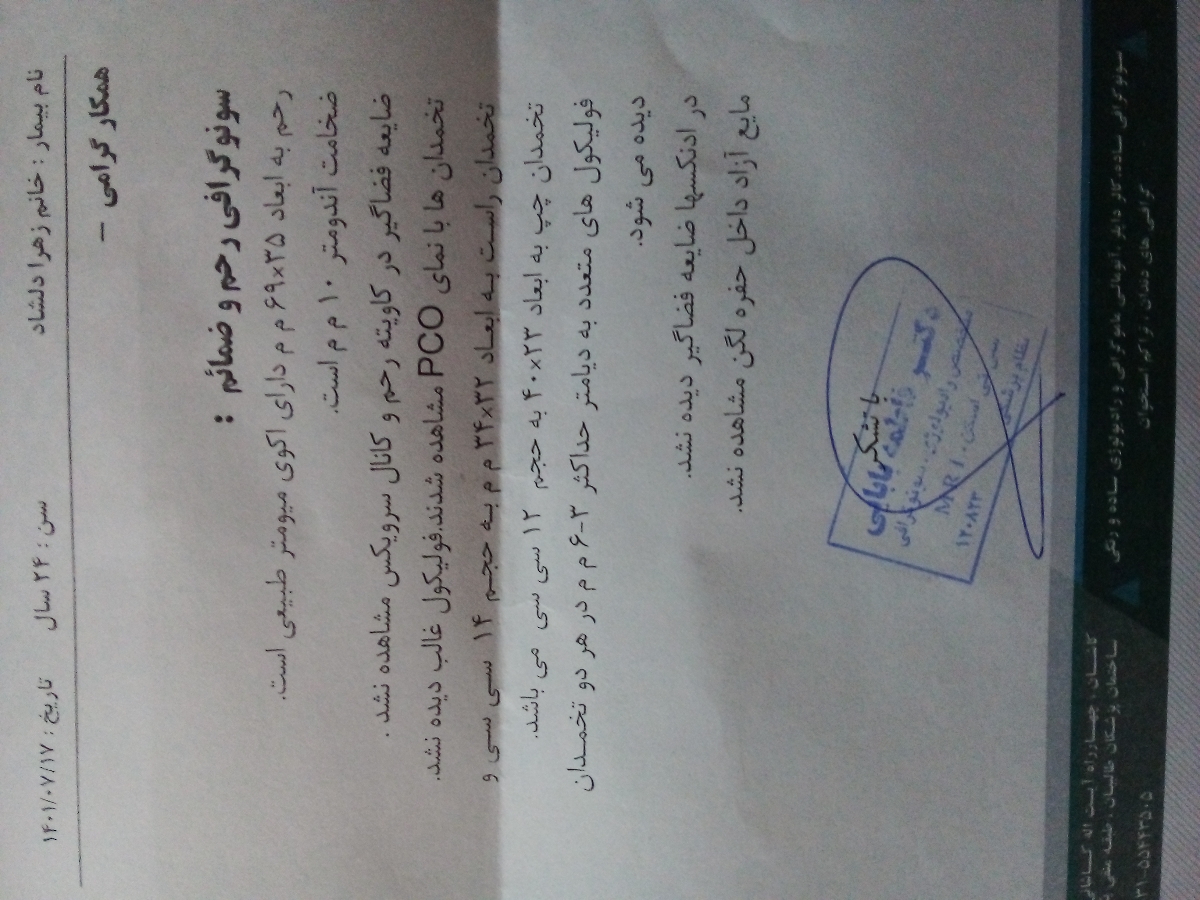 نام بیمار : خانم زهرا دلشاد سن : ۲۴ سال تاریخ : ۱۴۰۱/۰۷/۱۷
همکار گرامی –
سونوگرافی رحم و ضمائم :
رحم به ابعاد ۶۹×۳۵ م م دارای اکوی میومتر طبیعی است.
ضخامت آندومتر ۱۰ م م است.
ضایعه فضاگیر در کاویته رحم و کانال سرویکس مشاهده نشد .
تخمدان ها با نمای PCO مشاهده شدند.فولیکول غالب دیده نشد.
تخمدان راست به ابعاد ۳۴×۳۲ م م به حجم ۱۴ سی سی و
تخمدان چپ به ابعاد ۴۰×۲۳ به حجم ۱۲ سی سی می باشد.
فولیکول های متعدد به دیامتر حداکثر ۳-۶ م م در هر دو تخمدان
دیده می شود.
در ادنکسها ضایعه فضاگیر دیده نشد.
مایع آزاد داخل حفره لگن مشاهده نشد.
با تشکر
دکتر فاطمه بابایی
متخصص رادیولوژی، سونوگرافی
M.R.I
نظام پزشکی ۱۲۰۸۲۳
سونوگرافی ساده، کالر داپلر، ماموگرافی و رادیولوژی ساده و رنگی
گرافی های دندان، تراکم استخوان
کاشان، چهارراه آیت اله کاشانی
ساختمان پزشکان طالبیان، طبقه منفی